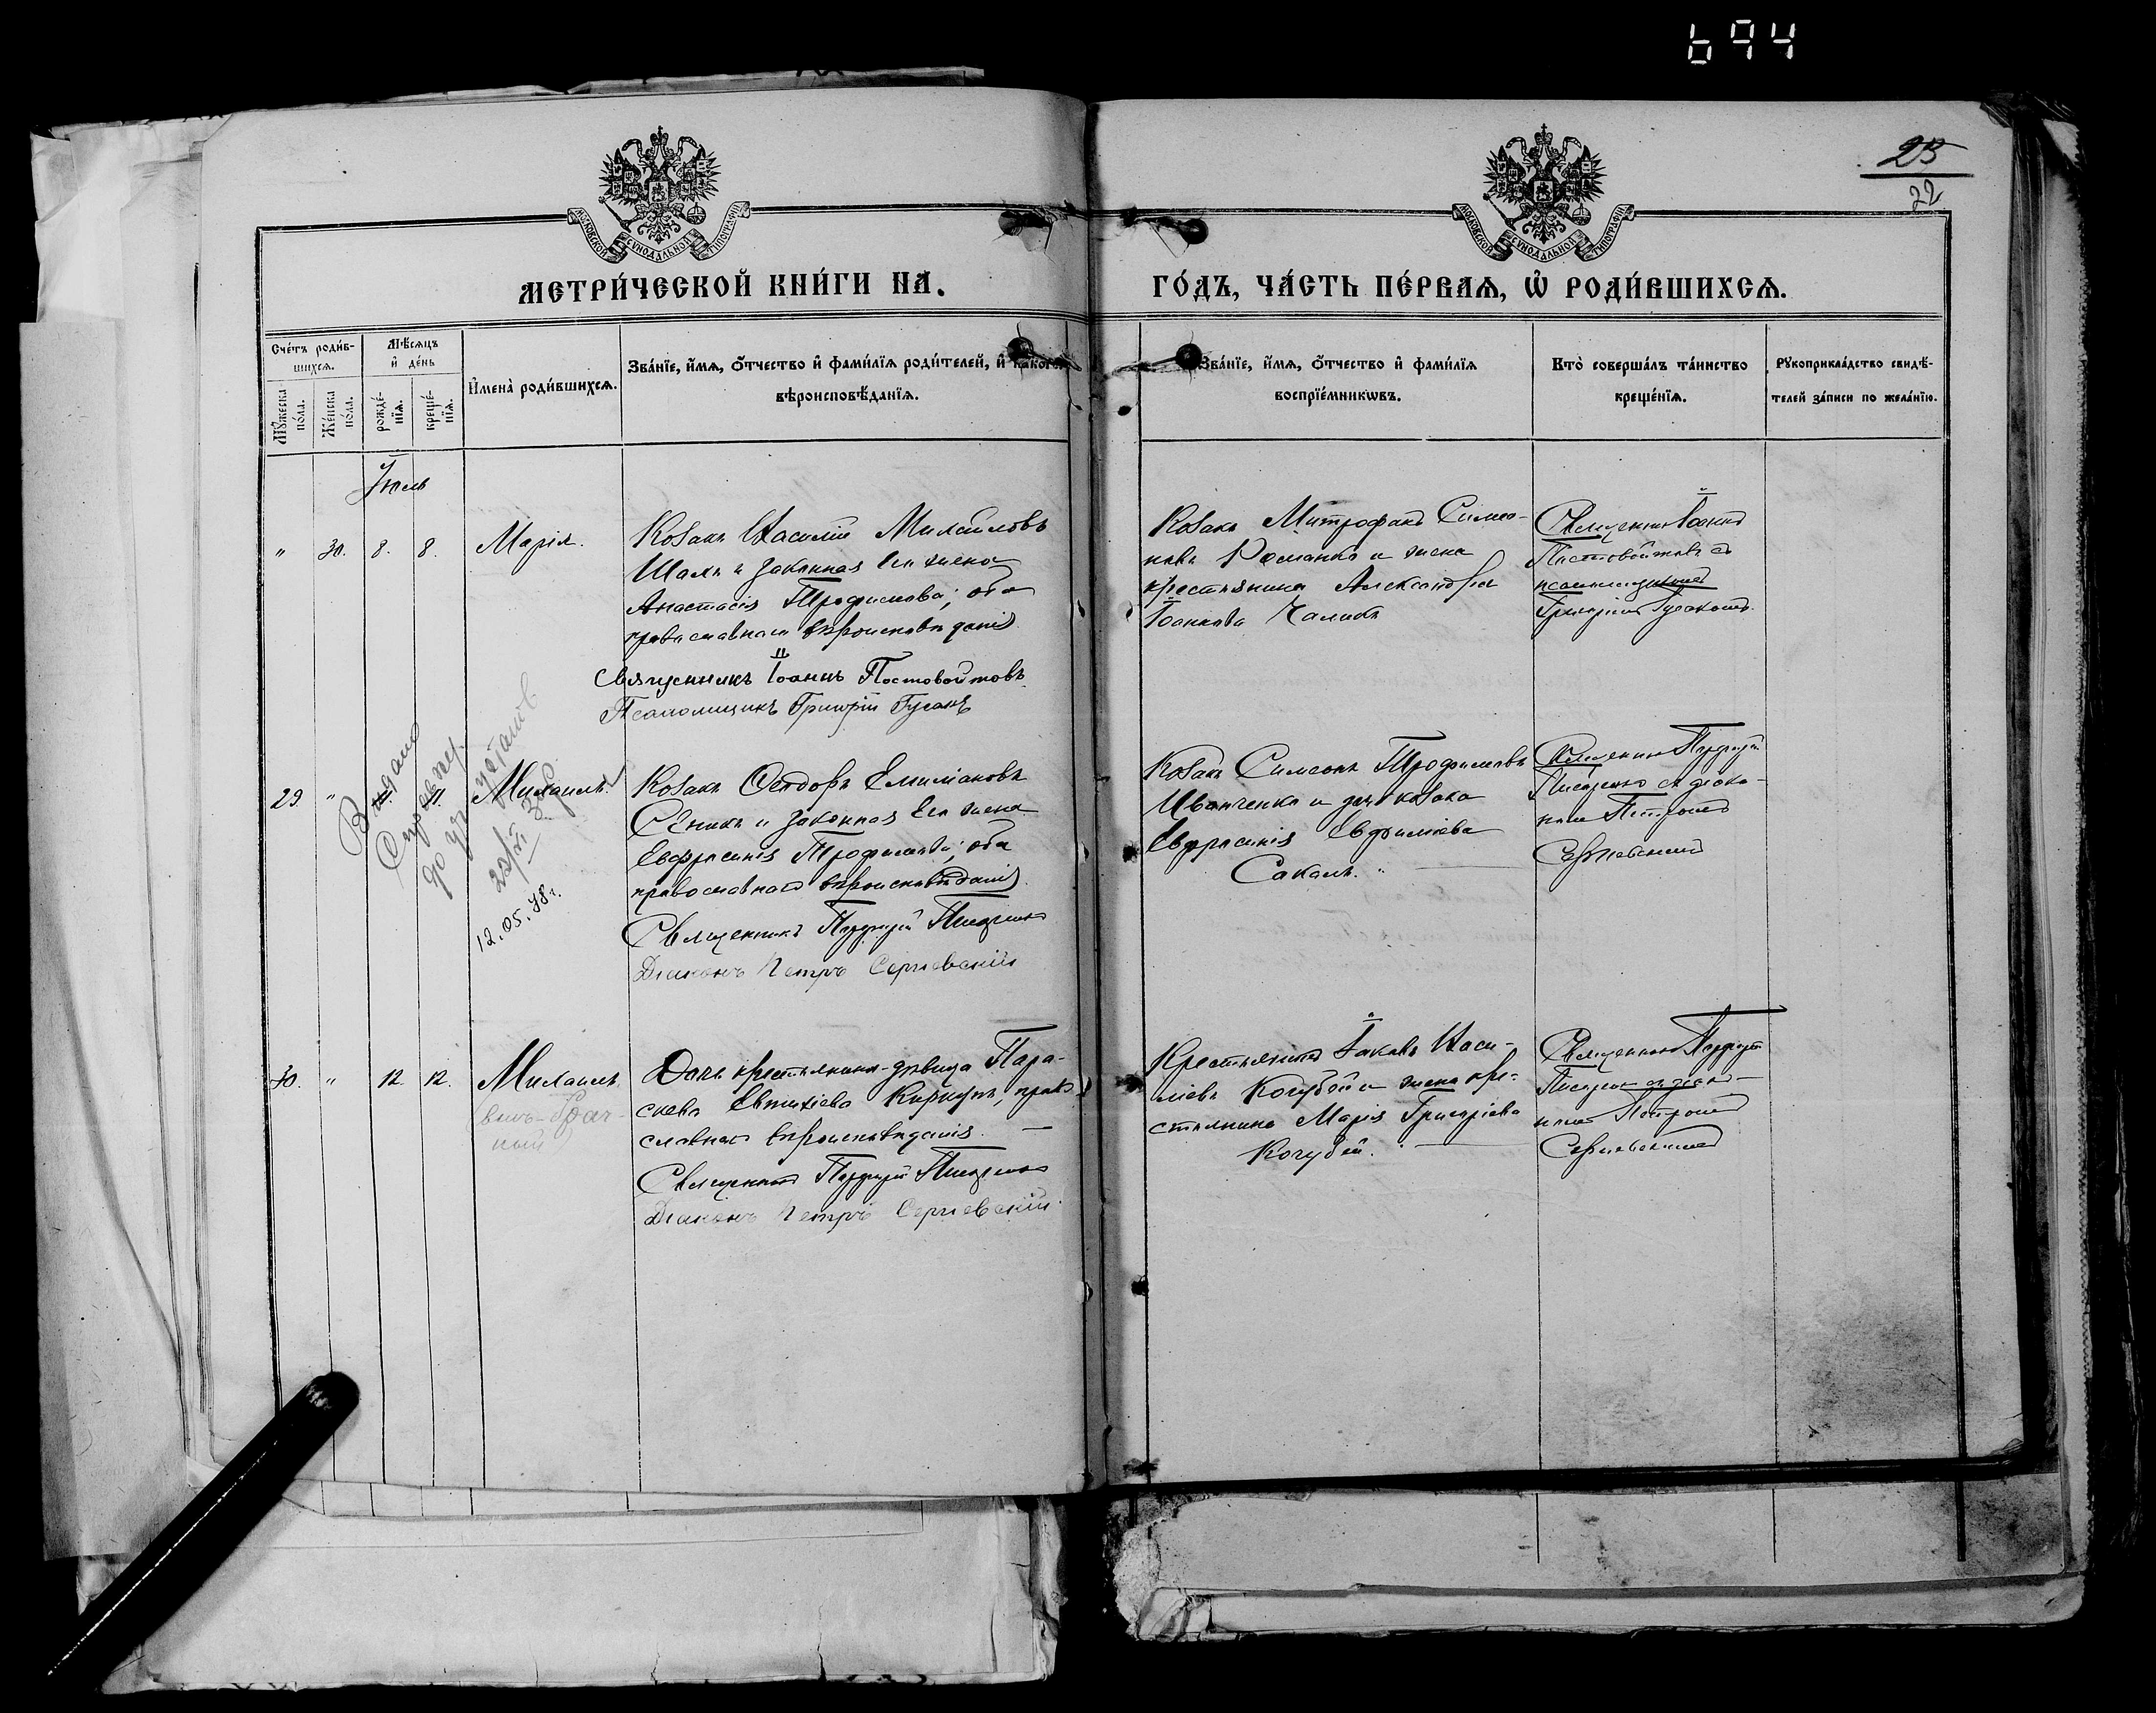 694
25
22
МОСКОВСКОЙ СѴНОДАЛЬНОЙ ТИПОГРАФІИ
МОСКОВСКОЙ СѴНОДАЛЬНОЙ ТИПОГРАФІИ
МЕТРИ́ЧЕСКОЙ КНИ́ГИ НА.
ГО́ДЪ, ЧА́СТЬ ПЕ́РВАѦ, Ѡ РОДИ́ВШИХСѦ.
Сче́тъ роди́в-
шихсѧ.
Мѣ́сѧцъ
и де́нь
Мꙋ́жеска
по́ла.
Же́нска
по́ла.
рожде́-
нїѧ.
креще́-
нїѧ.
И҆мена̀ роди́вшихсѧ.
Зва́нїе, и҆́мѧ, ѻ҆́тчество и҆ фами́лїѧ роди́телей, и҆ како́гѡ
вѣроисповѣ́данїѧ.
Зва́нїе, и҆́мѧ, ѻ҆́тчество и҆ фами́лїѧ
воспрїе́мникѡвъ.
Кто̀ соверша́лъ та́инство
креще́нїѧ.
Рꙋкоприкла́дство свидѣ́-
телей за́писи по жела́нїю.
Іюль
" 30. 8. 8. Марія.
Козакъ Василій Михайловъ
Шахъ и законная его жена
Анастасія Трофимова; оба
православнаго вѣроисповѣданія
Священникъ Іоаннъ Постовойтовъ
Псаломщикъ Григорій Гусакъ
Козакъ Митрофанъ Симео-
новъ Романко и жена
крестьянина Александра
Іоаннова Чалаго
Священникъ Іоаннъ
Постовойтовъ съ
псаломщикомъ
Григоріемъ Гусакомъ.
29. " 11. 11. Михаилъ.
Козакъ Ѳеодоръ Емиліановъ
Сѣникъ и законная его жена
Евфросинія Трофимова; оба
православнаго вѣроисповѣданія
Священникъ Порфирій
Діаконъ Петръ Сергіевскій
Выдано
до
12.05.78 г.
Козакъ Симеонъ Трофимовъ
Иванченко и дочь козака
Евфросинія Евфиміева
Сакалъ.
Священникъ Порфирій
съ діако-
номъ Петромъ
Сергіевскимъ
30. " 12. 12. Михаилъ
(внѣ-брач-
ный)
Дочь крестьянина-дѣвица Пара-
скева Евтихіева Киркунъ, право-
славнаго вѣроисповѣданія.
Священникъ Порфирій
Діаконъ Петръ Сергіевскій.
Крестьянинъ Іаковъ Васи-
ліевъ Кочубей и жена кре-
стьянина Марія Григоріева
Кочубей.
Священникъ Порфирій
съ діако-
номъ Петромъ
Сергіевскимъ